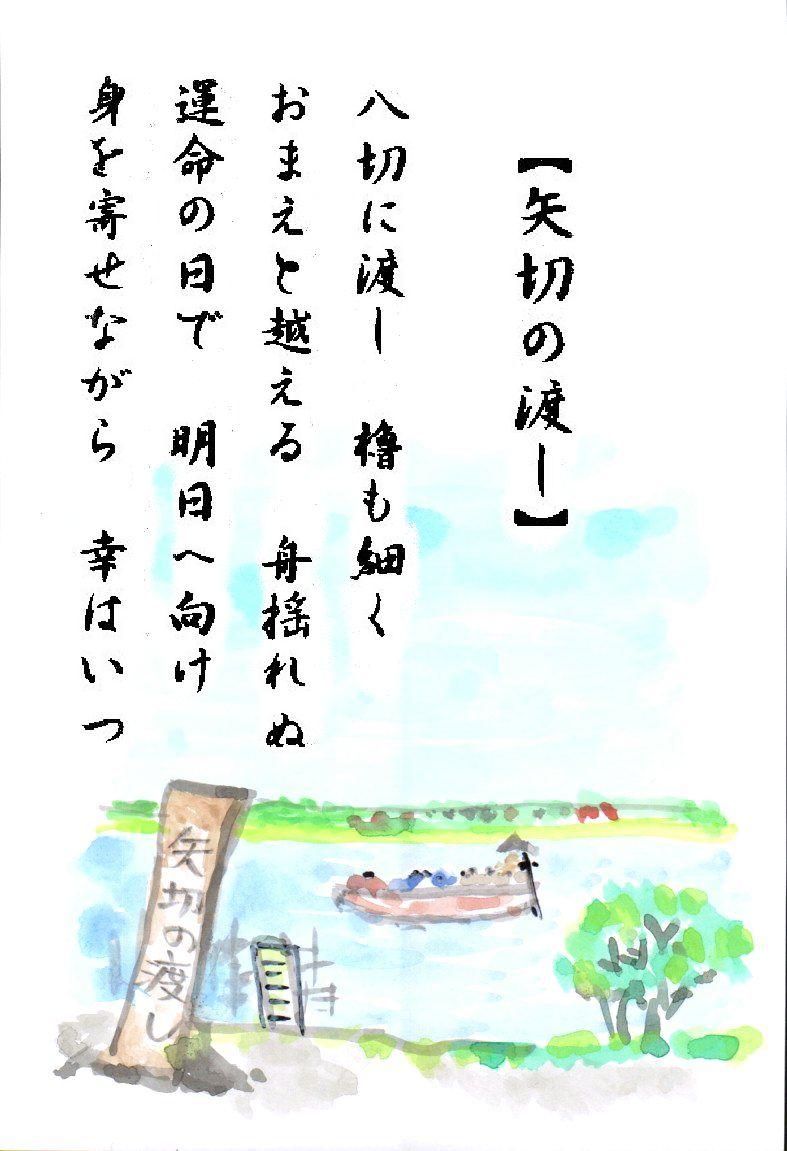 【矢切の渡し】
八切に渡し　櫓も細く
おまえと越える　舟揺れぬ
運命の日で　明日へ向け
身を寄せながら　幸はいつ
矢切の渡し